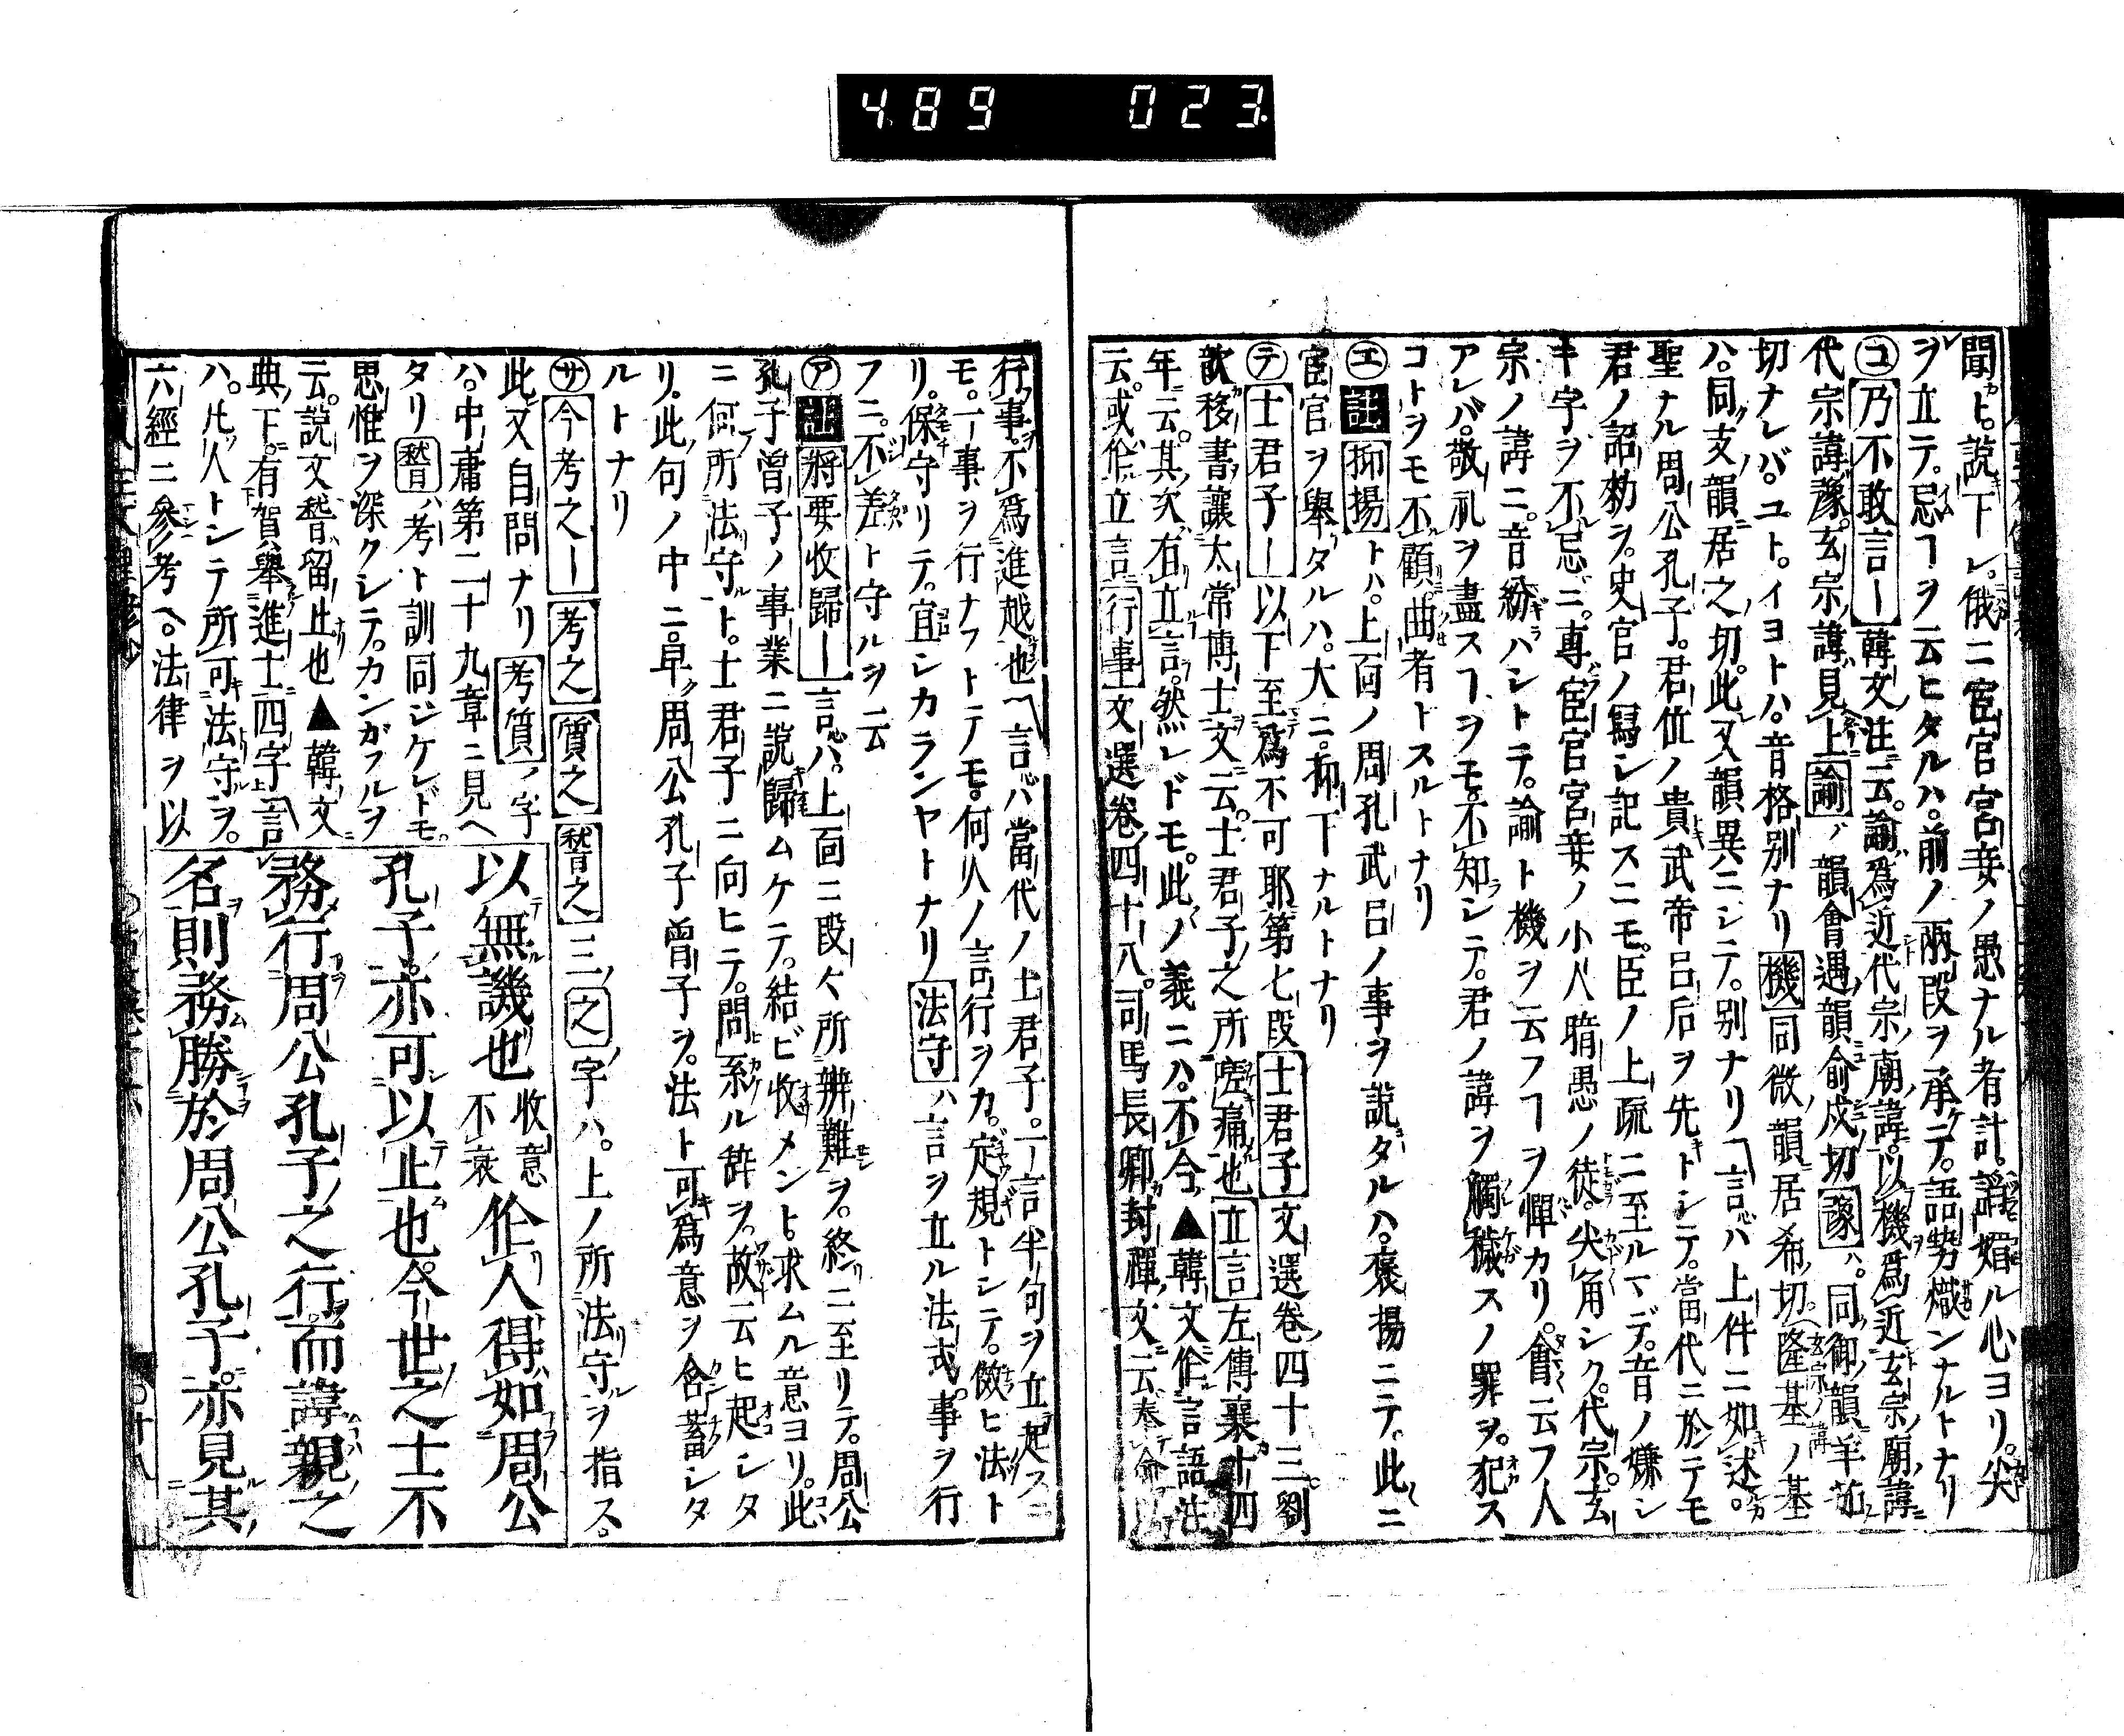 489 023
聞ト。説下レ。俄ニ宦官宮妾ノ愚ナル有計。諂媚ル心ヨリ。尖
ヲ立テ。忌ヿヲ云ヒタルハ。前ノ兩段ヲ承テ。語勢熾ンナルトナリ
㋴乃不敢言ー韓文注云。諭爲近代宗廟諱。以機爲近玄宗廟諱
代宗諱豫。玄宗諱見上諭ノ韻會遇韻俞戍切豫ハ。同御韻羊茹
切ナレバ。ユト。イヨトハ。音格別ナリ機同微韻居希切。隆基ノ基
ハ。同支韻居之切。此又韻異ニシテ。別ナリ言ハ上件ニ如述。
聖ナル周公孔子。君位ノ貴武帝呂后ヲ先トシテ。當代ニ於テモ
君ノ詔勅ヲ。史官ノ寫シ記スニモ。臣ノ上疏ニ至ルマデ。音ノ嫌シ
キ字ヲ不忌ニ。專宦官宮妾ノ小人暗愚ノ徒。尖角シク。代宗。玄
宗ノ諱ニ。音紛ハントテ。諭ト機ヲ云フヿヲ憚カリ。會云フ人
アレバ。敬礼ヲ盡スヿヲモ。不知シテ。君ノ諱ヲ觸穢スノ罪ヲ。犯ス
コトヲモ不顧。曲者トスルトナリ
㋓註抑揚トハ。上面ノ周孔武呂ノ事ヲ説タルハ。褒揚ニテ。此ニ
宦官ヲ舉タルハ。大ニ抑下ナルトナリ
㋢士君子ー以下至爲不可耶第七段士君子文選卷四十三。劉
歆移書讓太常博士文云。士君子之所嗟痛也立言左傳襄廿四
年云。其次有立言。然レドモ。此ノ義ニハ。不今▲韓文作言語注
云。或作立言行事文選卷四十八。司馬長卿封禪文云
行事。不爲進越也言ハ當代ノ士君子。一言半句ヲ立起スニ
モ。一事ヲ行ナフトテモ。何人ノ言行ヲカ。定規トシテ。傚ヒ法ト
リ。保守リテ。宜シカランヤトナリ法守ハ言ヲ立ル法式。事ヲ行
フニ。不差ト守ルヲ云
㋐註將要收歸ー言ハ。上面ニ段々所辨難ヲ。終ニ至リテ。周公
孔子曾子ノ事業ニ説歸ムケテ。結ビ收メント。求ムル意ヨリ。此
ニ何所法守ト。士君子ニ向ヒテ。問系ル辞ヲ。故云ヒ起シタ
リ。此句ノ中ニ。早周公孔子曾子ヲ。法ト可爲意ヲ含蓄シタ
ルトナリ
㋚今考之ー考之質之朁之三之字ハ。上ノ所法守ヲ指ス。
此又自問ナリ考質ノ字
ハ。中庸第二十九章ニ見ヘ
タリ朁ハ考ト訓同ジケレドモ。
思惟ヲ深クシテ。カンガフルヲ
云。説文朁留止也▲韓文
典下。有賀舉進士四字言
ハ。凡人トシテ所可法守ヲ。
六經ニ參考ヘ。法律ヲ以
以無譏也 收意不衰 作人得如周公
孔子。亦可以止也。今世之士不
務行周公孔子之行。而諱親之
名則務勝於周公孔子。亦見其